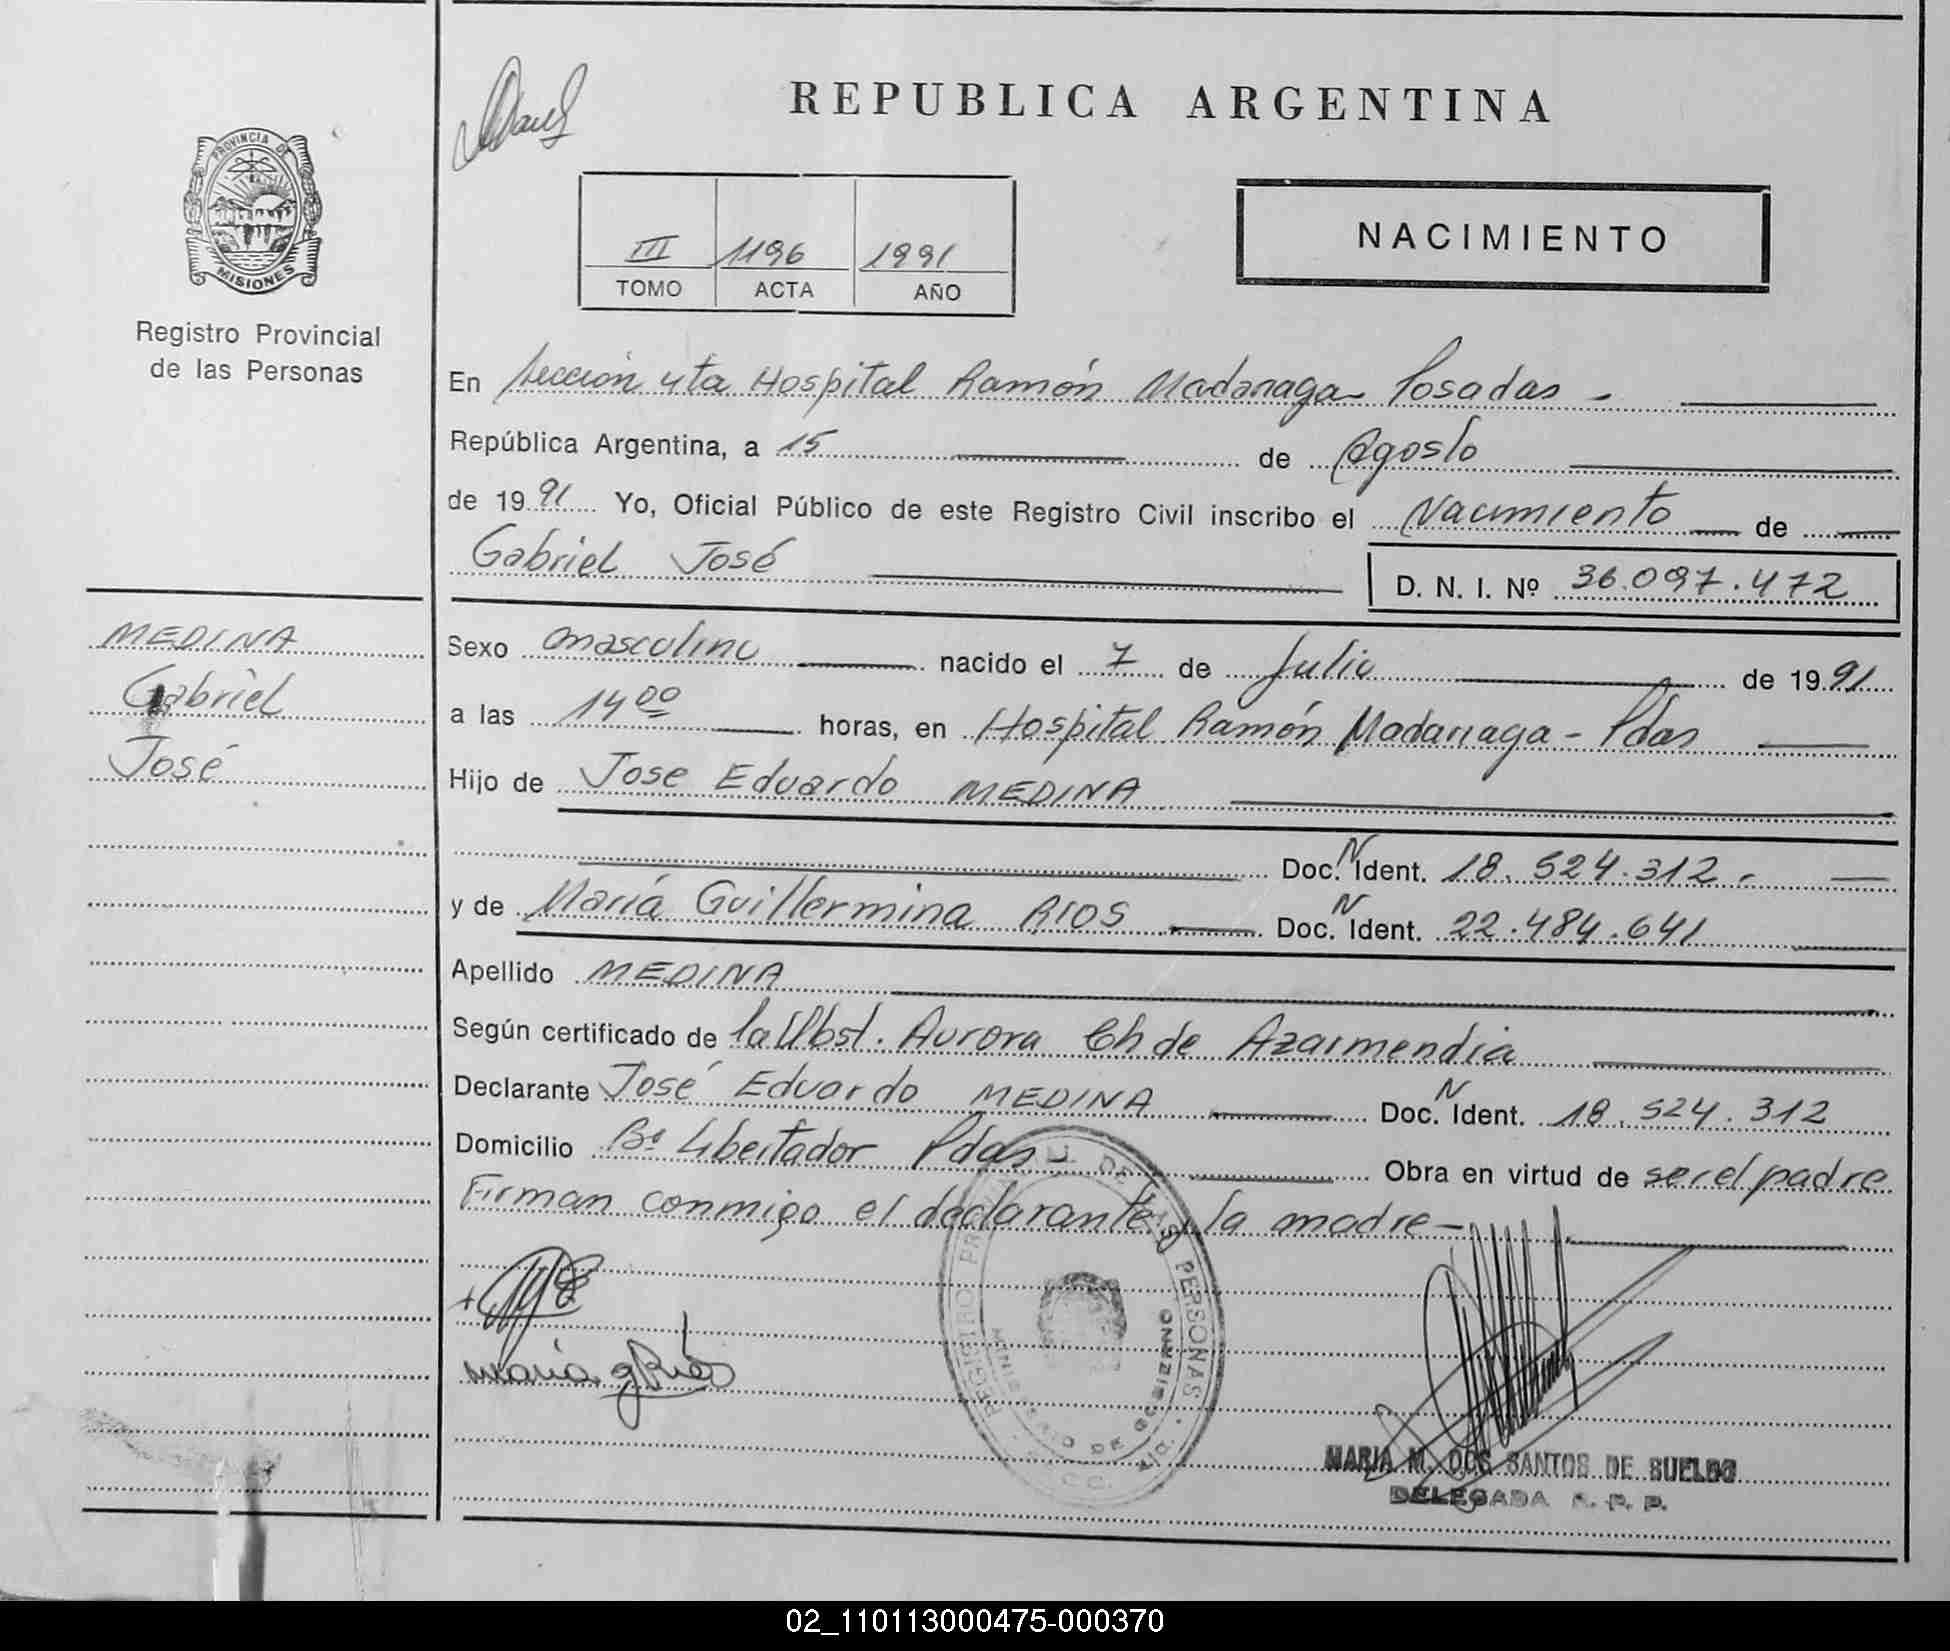 REPUBLICA ARGENTINA
PROVINCIA DE MISIONES
Registro Provincial
de las Personas
III 1196 1991
TOMO ACTA AÑO
NACIMIENTO
En Sección 4ta Hospital Ramón Madariaga Posadas
República Argentina, a 15 de Agosto
de 1991 Yo, Oficial Público de este Registro Civil inscribo el Nacimiento de
Gabriel José D. N. I. Nº 36.097.472
MEDINA
Gabriel
José
Sexo masculino nacido el 7 de Julio de 1991
a las 14 00 horas, en Hospital Ramón Madariaga - Pdas
Hijo de Jose Eduardo MEDINA
Doc. N Ident. 18.524.312.
y de María Guillermina RIOS Doc. N Ident. 22.484.641
Apellido MEDINA
Según certificado de la Obst. Aurora Ch de Azarmendia
Declarante José Eduardo MEDINA Doc. N Ident. 18.524.312
Domicilio Bº Libertador Pdas Obra en virtud de ser el padre
Firman conmigo el declarante y la madre-
maria g Rios
REGISTRO PROVINCIAL DE LAS PERSONAS
MINISTERIO DE GOBIERNO
MARIA M. DOS SANTOS DE SUELDO
DELEGADA R. P. P.
02_110113000475-000370